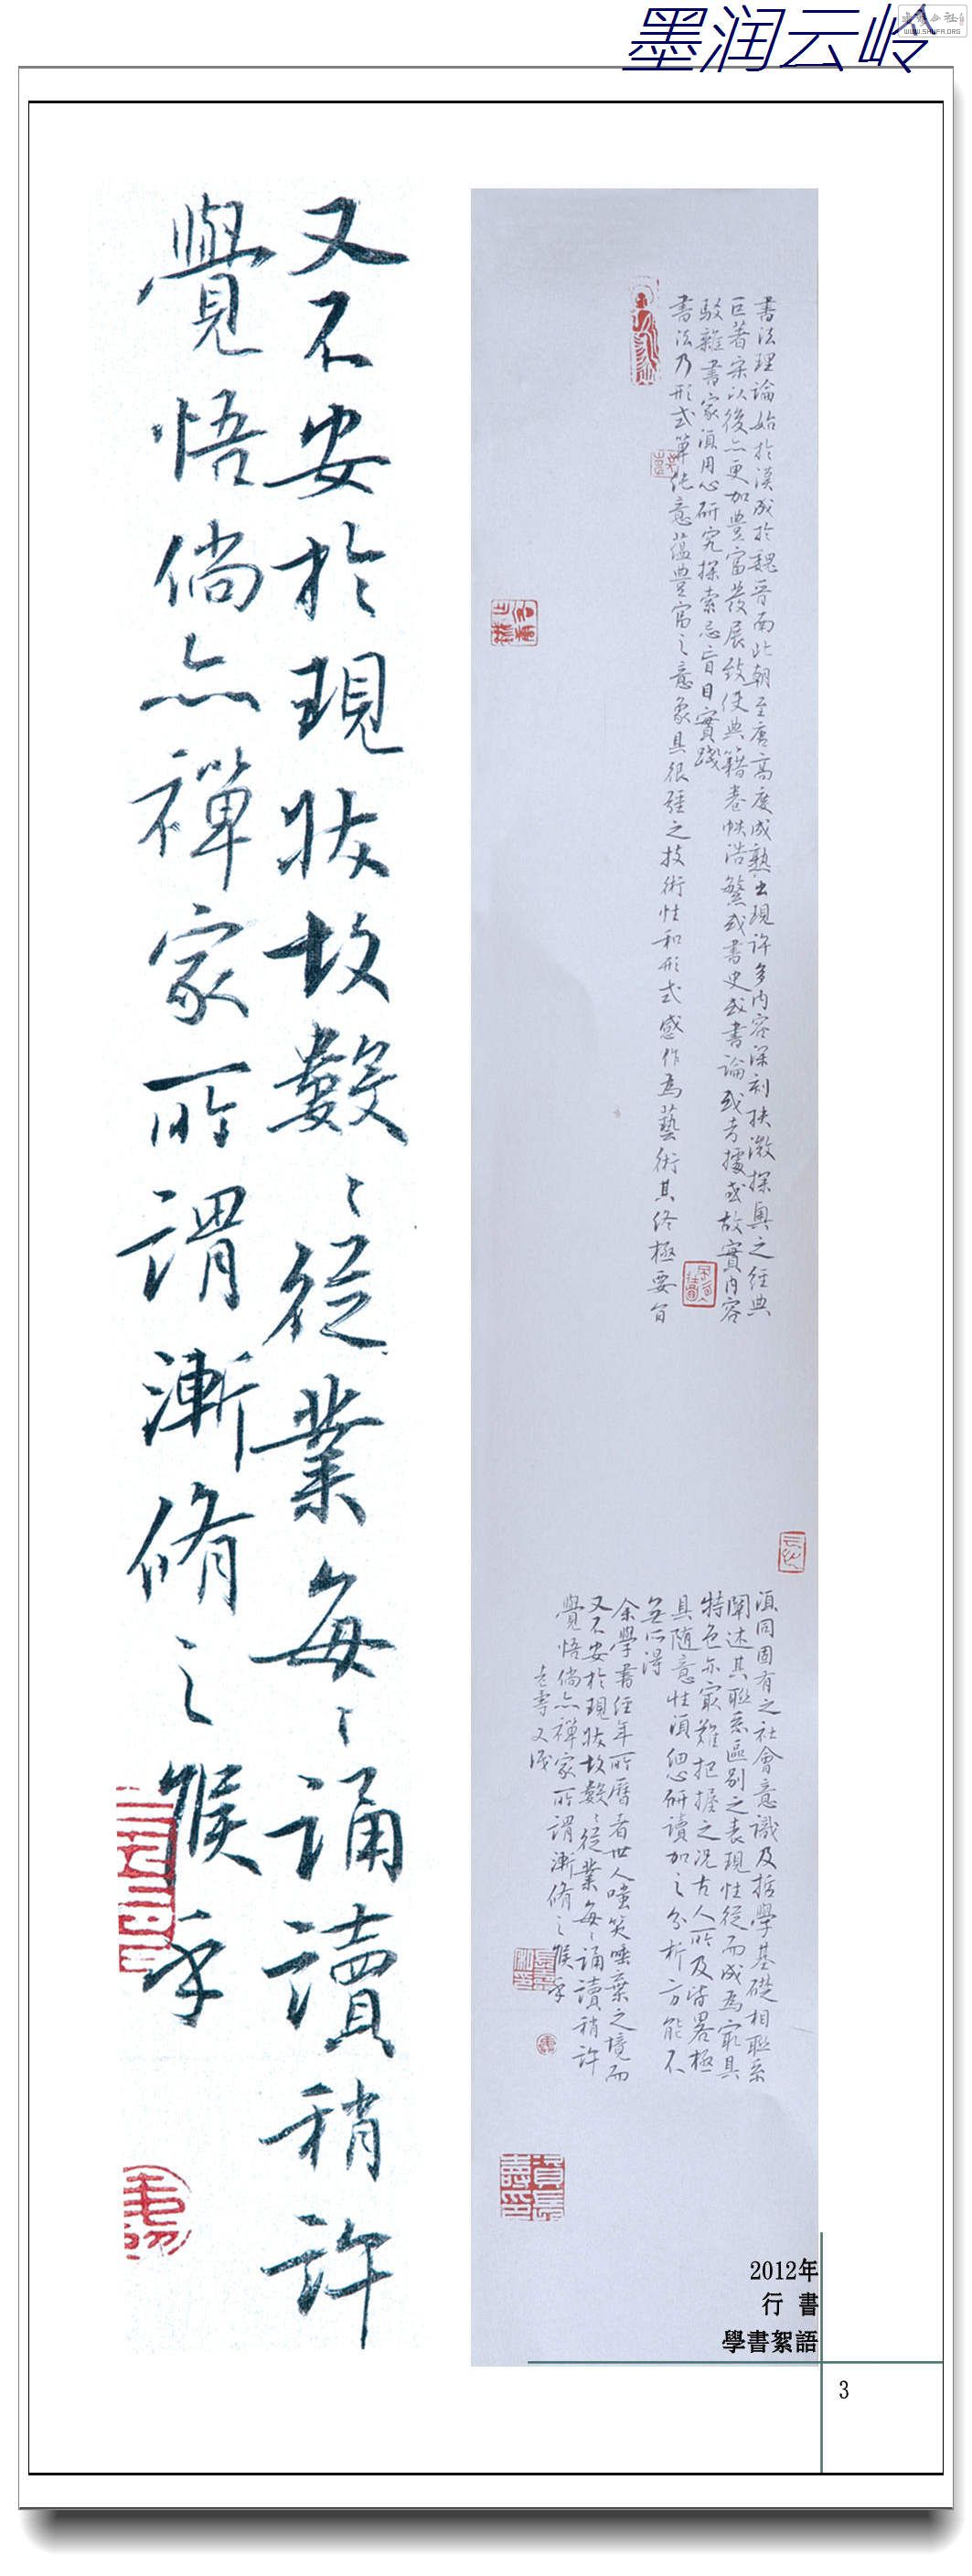 墨润云岭
WWW.SHUFA.ORG
又不安於現狀故數〻從業每〻誦讀稍許
覺悟倘亦禪家所謂漸脩之候乎
書法理論始於漢成於魏晉南北朝至唐高度成熟出現許多內容深刻抉微探奧之經典
巨著宋以後亦更加豊富發展致使典籍卷帙浩繁或書史或書論或考據或故實內容
駁雜書家須用心研究探索忌盲目實踐
書法乃形式單純意蘊豊富之意象具很強之技術性和形式感作為藝術其終極要旨
須同固有之社會意識及哲學基礎相聯系
闡述其聯系區別之表現性從而成為最具
特色亦最難把握之況古人所及皆畧極
具隨意性須細研讀加之分析方能不
無所得
余學書經年所曆者世人嗤笑唾棄之境而
又不安於現狀故數〻從業每〻誦讀稍許
覺悟倘亦禪家所謂漸脩之候乎
長壽又識
2012年
行 書
學書絮語
3